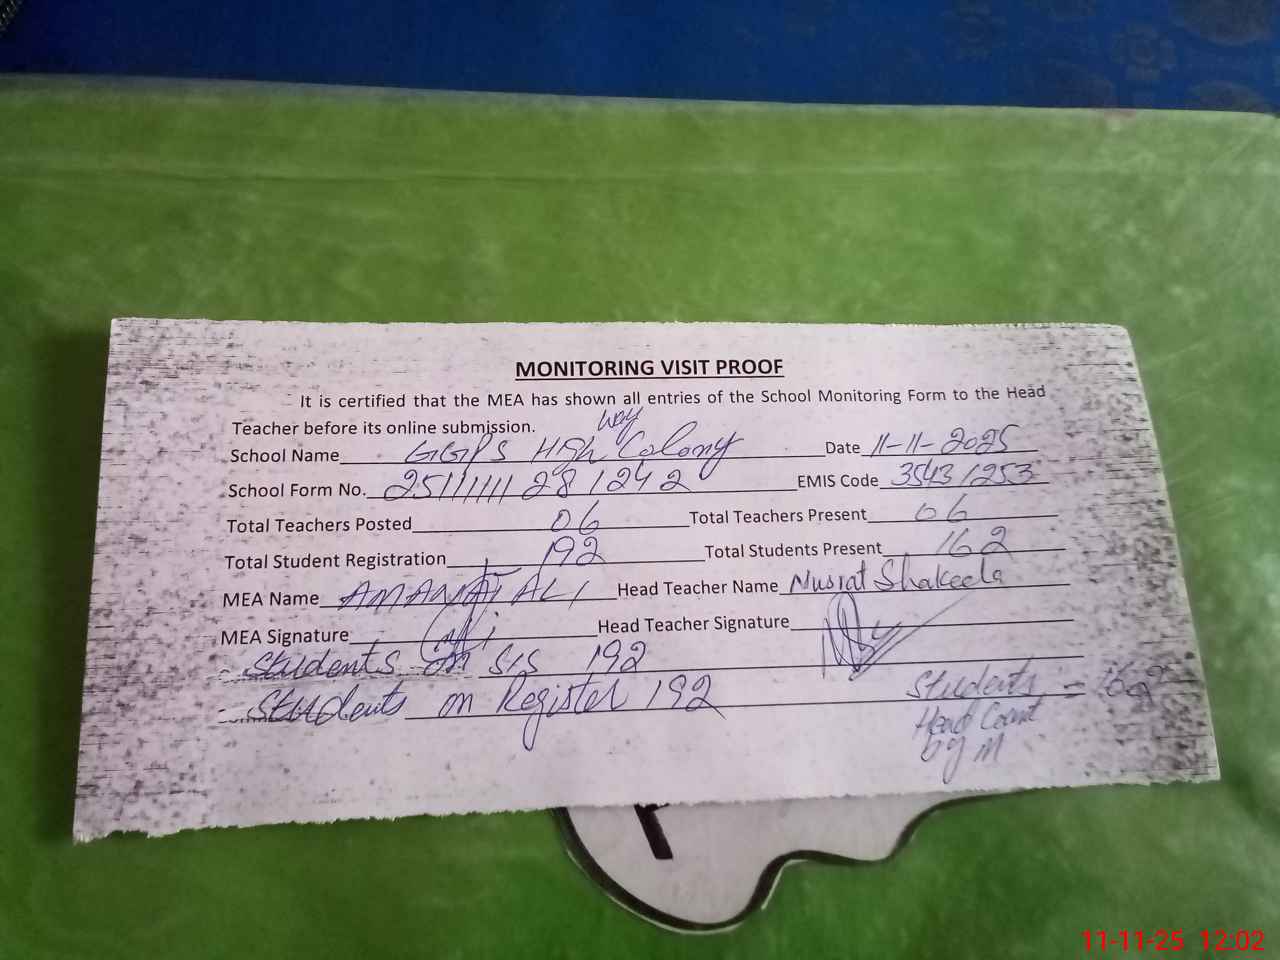 MONITORING VISIT PROOF
It is certified that the MEA has shown all entries of the School Monitoring Form to the Head
Teacher before its online submission.
School Name GGPS High way Colony Date 11-11-2025
School Form No. 25111111 28 1242 EMIS Code 35431253
Total Teachers Posted 06 Total Teachers Present 06
Total Student Registration 192 Total Students Present 162
MEA Name AMANAT ALI Head Teacher Name Nusrat Shakeela
MEA Signature Head Teacher Signature
Students on SIS 192
Students on Register 192
Students
Head Count
by M
11-11-25 12:02